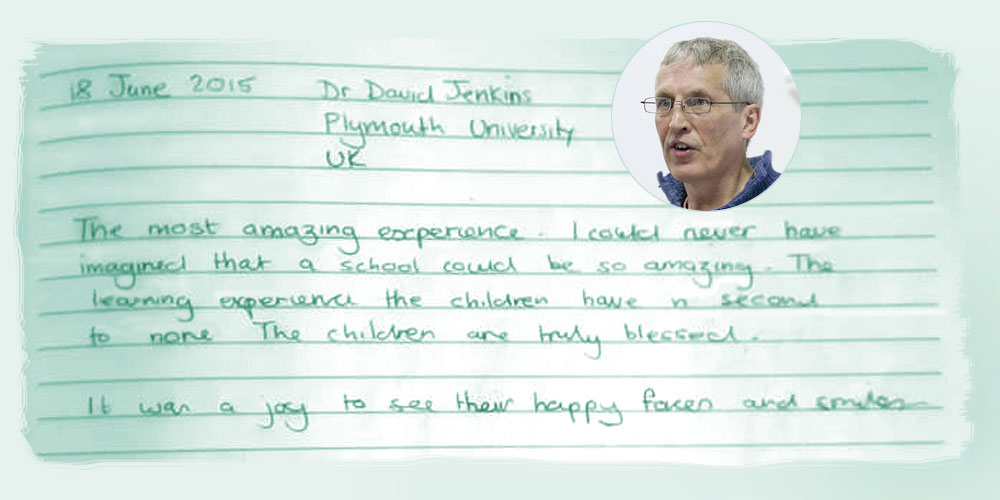 18 June 2015 Dr David Jenkins
Plymouth University
UK
The most amazing experience. I could never have
imagined that a school could be so amazing. The
learning experience the children have is second
to none The children are truly blessed.
It was a joy to see their happy faces and smiles